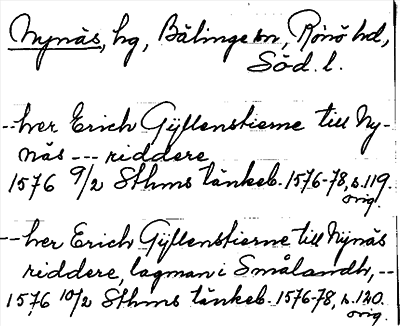 Nynäs, hg, Bälinge sn, Rönö hd,
Söd. l.
--her Erich Gyllenstierne till Ny-
näs --- riddere
1576 9/2 Sthms tänkeb. 1576-78, s. 119.
orig.
--her Erich Gyllenstierne till Nynäs
riddere, lagman i Smålandh, --
1576 10/2 Sthms tänkeb. 1576-78, s. 120.
orig.